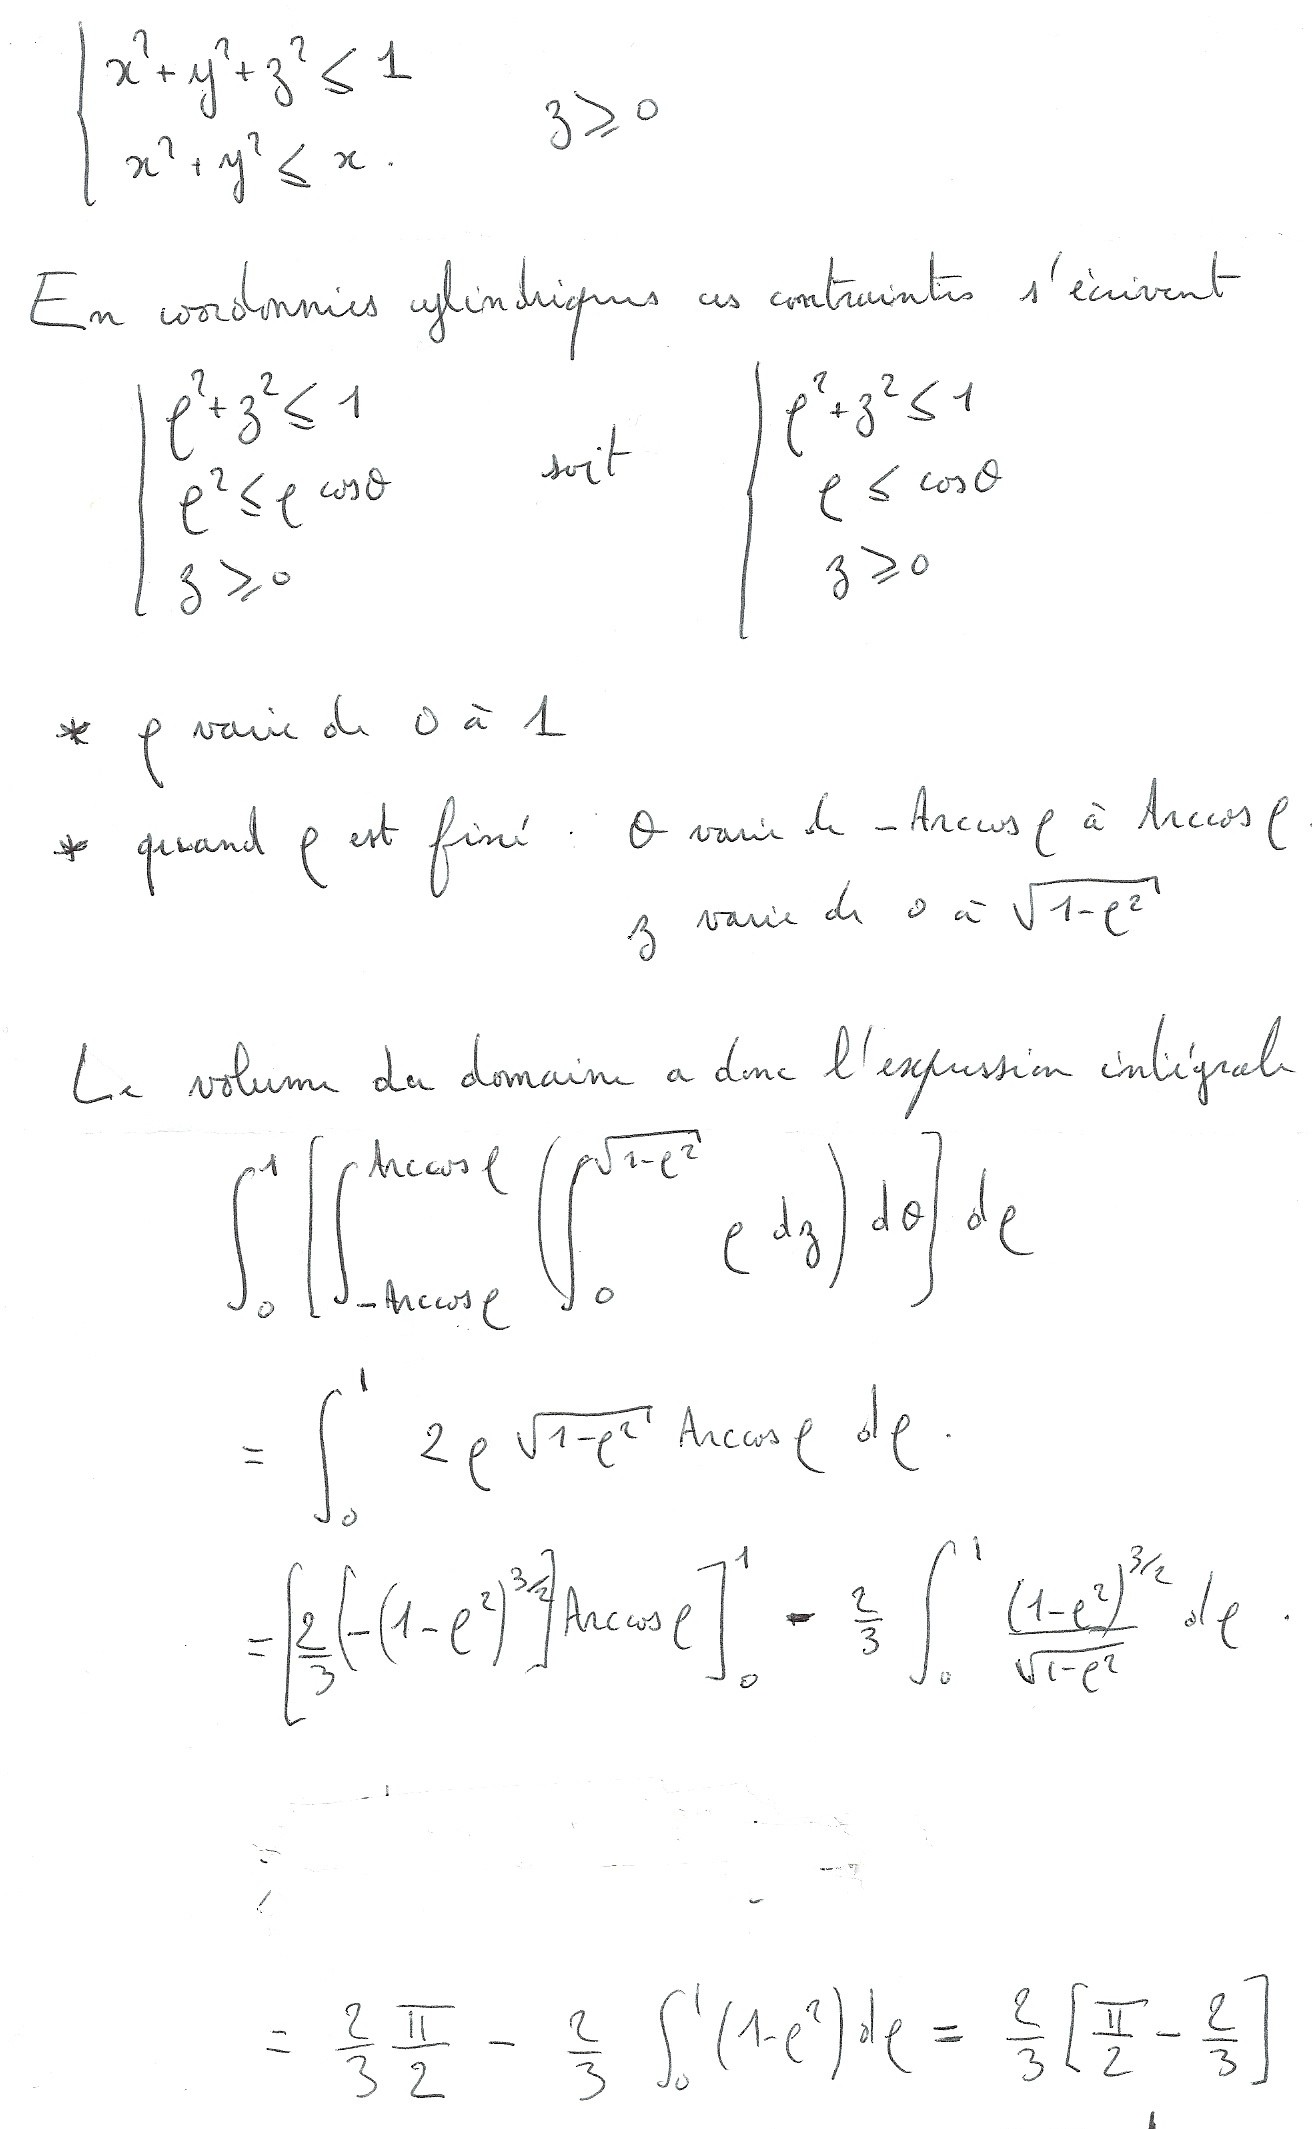 x² + y² + z² ≤ 1
z ≥ 0
x² + y² ≤ x.
En coordonnées cylindriques ces contraintes s'écrivent
ρ² + z² ≤ 1
ρ² ≤ ρ cosθ
z ≥ 0
soit
ρ² + z² ≤ 1
ρ ≤ cosθ
z ≥ 0
* ρ varie de 0 à 1
* quand ρ est fixé : θ varie de -Arccos ρ à Arccos ρ.
z varie de 0 à √(1-ρ²)
Le volume du domaine a donc l'expression intégrale
∫₀¹ [∫_{-Arccos ρ}^{Arccos ρ} (∫₀^{√(1-ρ²)} ρ dz) dθ] dρ
= ∫₀¹ 2ρ √(1-ρ²) Arccos ρ dρ.
= [2/3 [-(1-ρ²)^{3/2}] Arccos ρ]₀¹ - 2/3 ∫₀¹ (1-ρ²)^{3/2}/√(1-ρ²) dρ.
= 2/3 π/2 - 2/3 ∫₀¹ (1-ρ²) dρ = 2/3 [π/2 - 2/3]